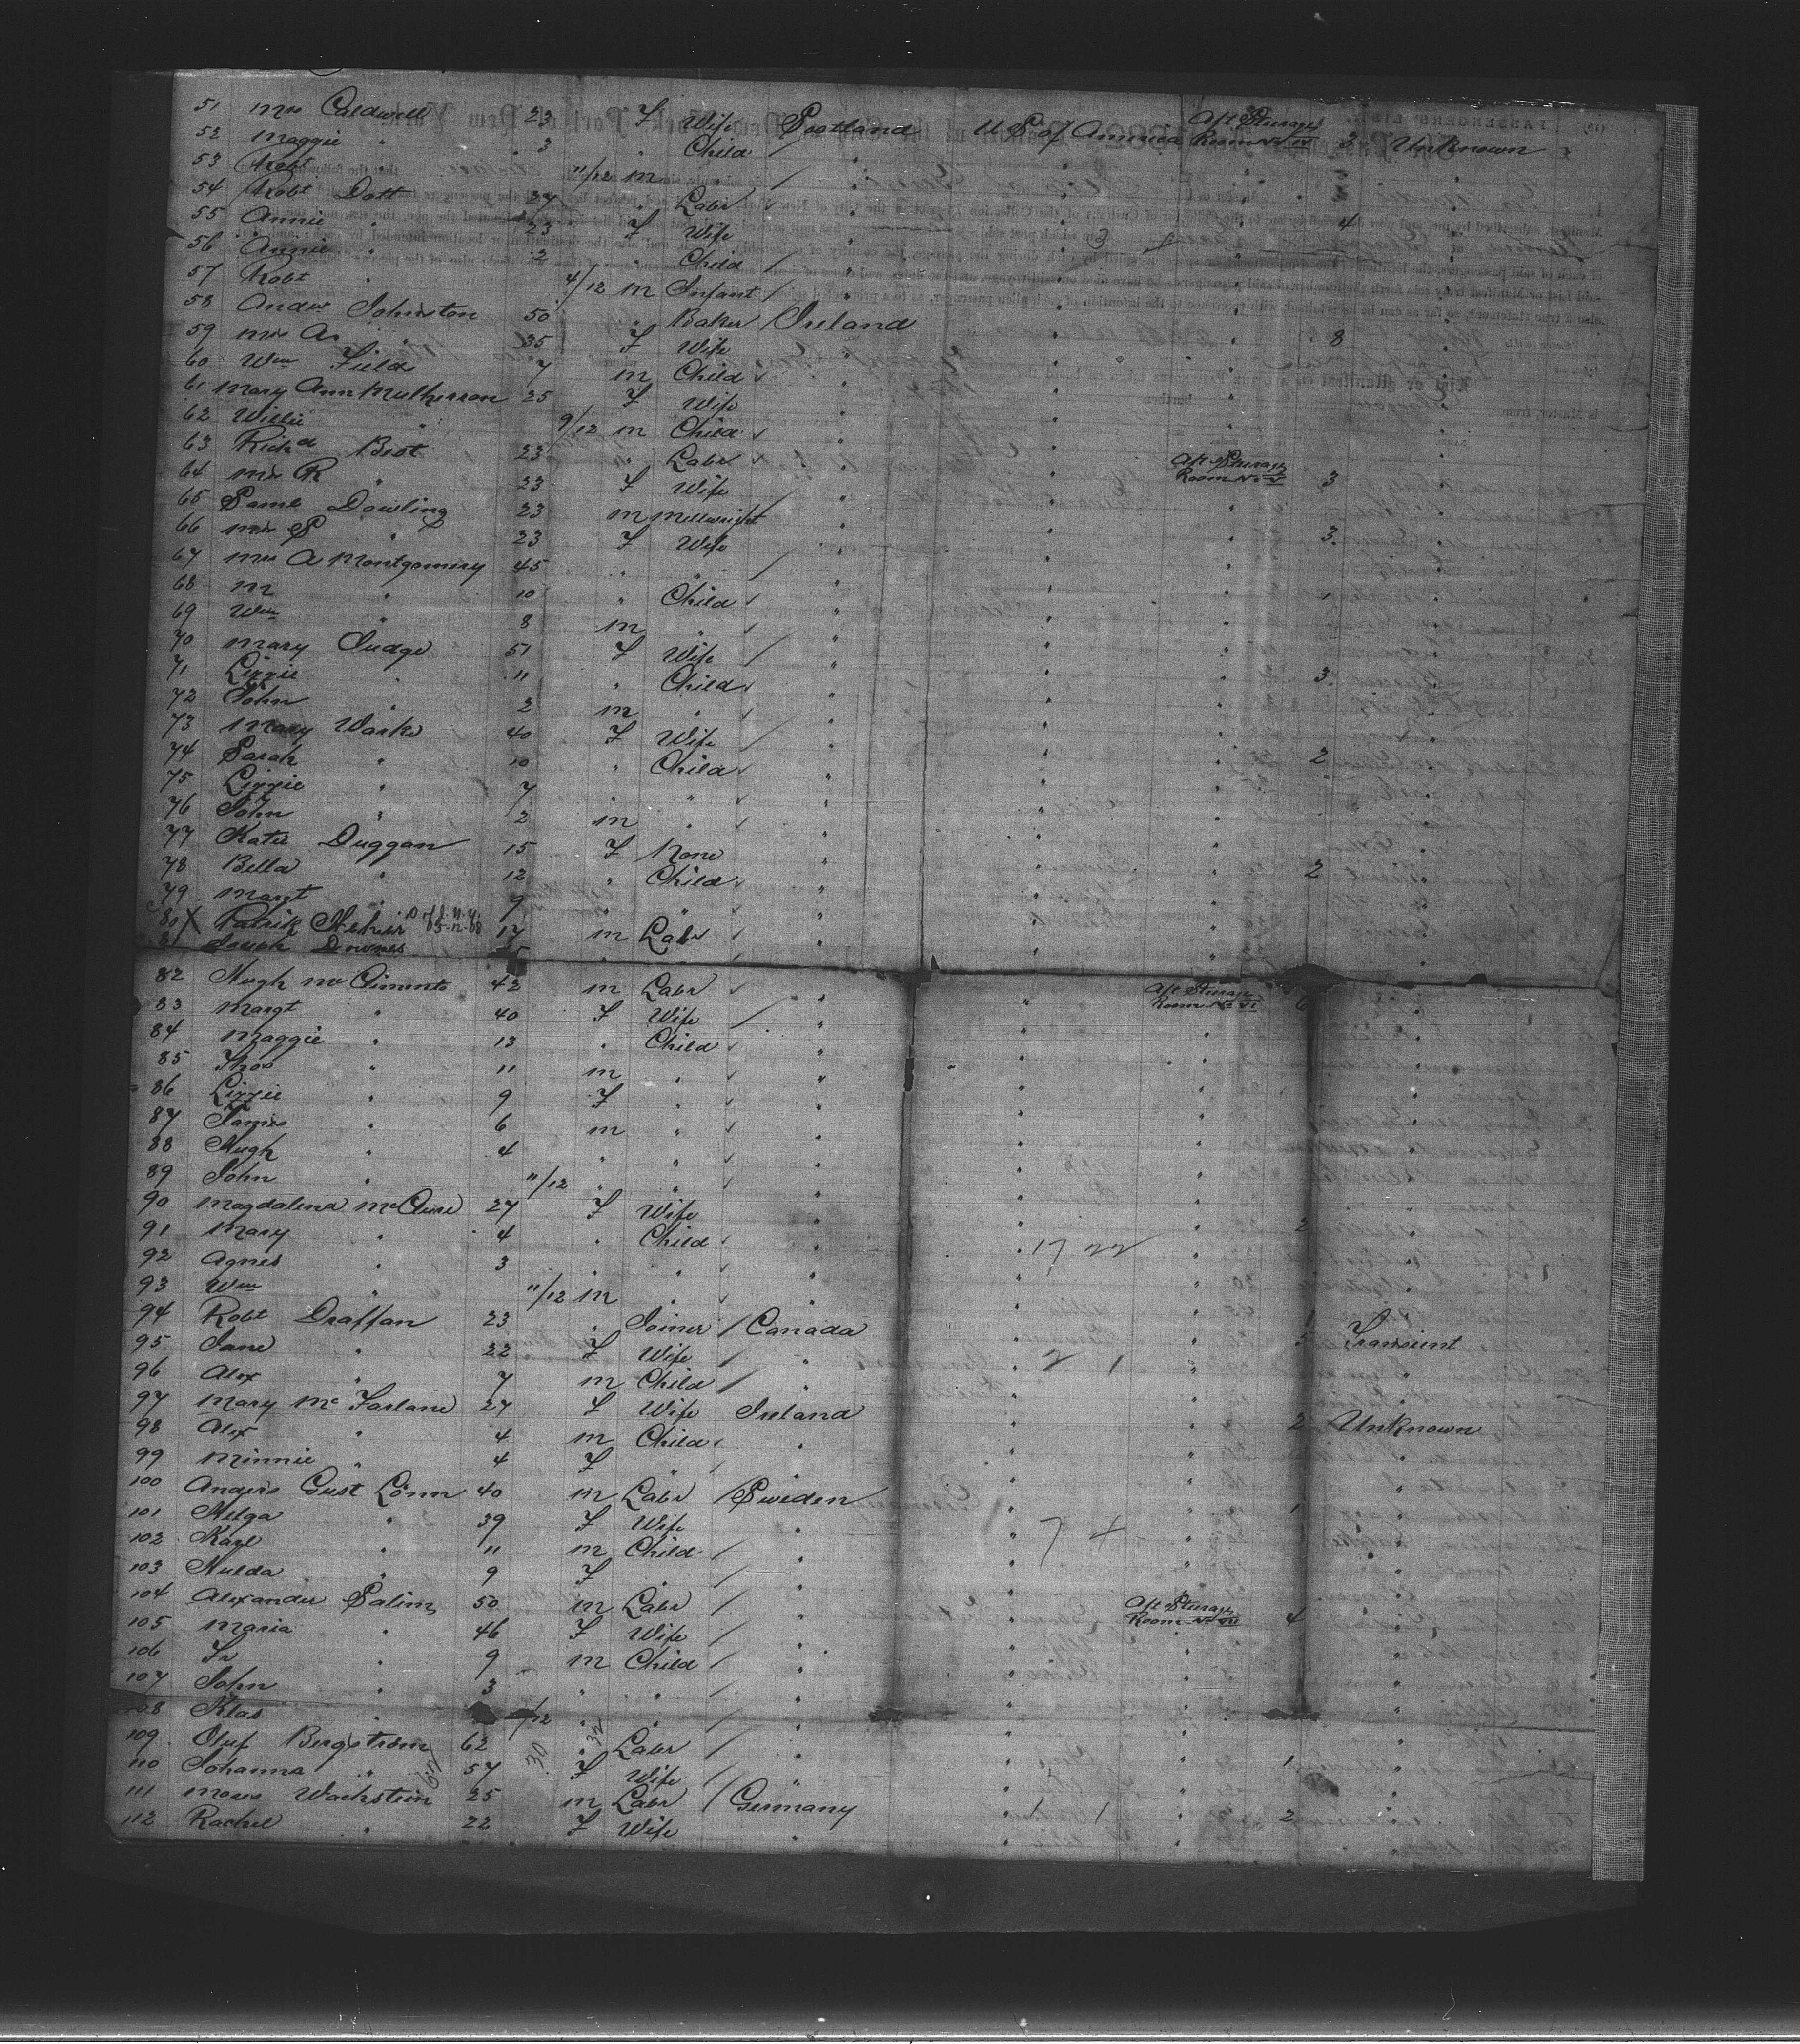 51 Mrs Caldwell 23 F Wife Scotland U S of America Aft Steerage Room No IV 3 Unknown
52 Maggie " 3 " Child / " " " "
53 Robt " 11/12 M " / " " "
54 Robt Dott 27 " Labr " " " 4 "
55 Annie " 23 F Wife " " "
56 Annie " 2 " Child / " " "
57 Robt " 4/12 M Infant / " " "
58 Andw Johnston 50 " Baker / Ireland " " 8 "
59 Mrs A. " 35 F Wife " " "
60 Wm Field 7 M Child " " "
61 Mary Ann Mulherron 25 F Wife " " "
62 Willie " 9/12 M Child " " "
63 Richd Best 23 " Labr " " Aft Steerage Room No V 3 "
64 Mrs R " 23 F Wife " " "
65 Saml Dowling 23 M Millwright " " " 3 "
66 Mrs S " 23 F Wife / " " "
67 Mrs A Montgomery 45 " " / " " " "
68 M " 10 " Child " " " "
69 Wm " 8 M " " " "
70 Mary Judge 51 F Wife / " " " 3 "
71 Lizzie " 11 " Child " " "
72 John " 2 M " " " "
73 Mary Warke 40 F Wife / " " " 2
74 Sarah " 10 " Child " " "
75 Lizzie " 7 " " " " "
76 John " 2 M " " " "
77 Katie Duggan 15 F None " " " 2 "
78 Bella " 12 " Child " " "
79 Margt " 9 " " " " "
80 X Patrik 17 M Labr " " "
81 Joseph Downes " " " "
82 Hugh McCiments 42 M Labr " " Aft Steerage Room No VI 6 "
83 Margt " 40 F Wife / " " "
84 Maggie " 13 " Child " " "
85 Thos " 11 M " " " "
86 Lizzie " 9 F " " " "
87 James " 6 M " " " "
88 Hugh " 4 " " " " "
89 John " 11/12 " " " " "
90 Magdalena McClure 27 F Wife " " " 2 "
91 Mary " 4 " Child " " 17 22 "
92 Agnes " 3 " " " " "
93 Wm " 11/12 M " " " "
94 Robt Draffan 23 " Joiner / Canada " " 5 Transient
95 Jane " 22 F Wife / " " 2 1 " "
96 Alex " 7 M Child / " " "
97 Mary McFarlane 27 F Wife Ireland " " 2 Unknown
98 Alex " 4 M Child " " "
99 Minnie " 4 F " " " "
100 Anders Gust Lönn 40 M Labr / Sweden " " 1 "
101 Helga " 39 F Wife " " 7 4 "
102 Karl " 11 M Child / " " "
103 Hulda " 9 F " / " " "
104 Alexander Salim 50 M Labr / " " Aft Steerage Room No VII 4 "
105 Maria " 46 F Wife / " " "
106 Fr " 9 M Child / " " "
107 John " 3 " " / " " "
108 Klas " /12 " " / " " "
109 Oluf Bergström 62 30 " 32 Labr / " " " 1 "
110 Johanna " 57 F Wife / " " "
111 Moses Wachstein 25 M Labr / Germany " 1 1 " 2 "
112 Rachel " 22 F Wife " " "